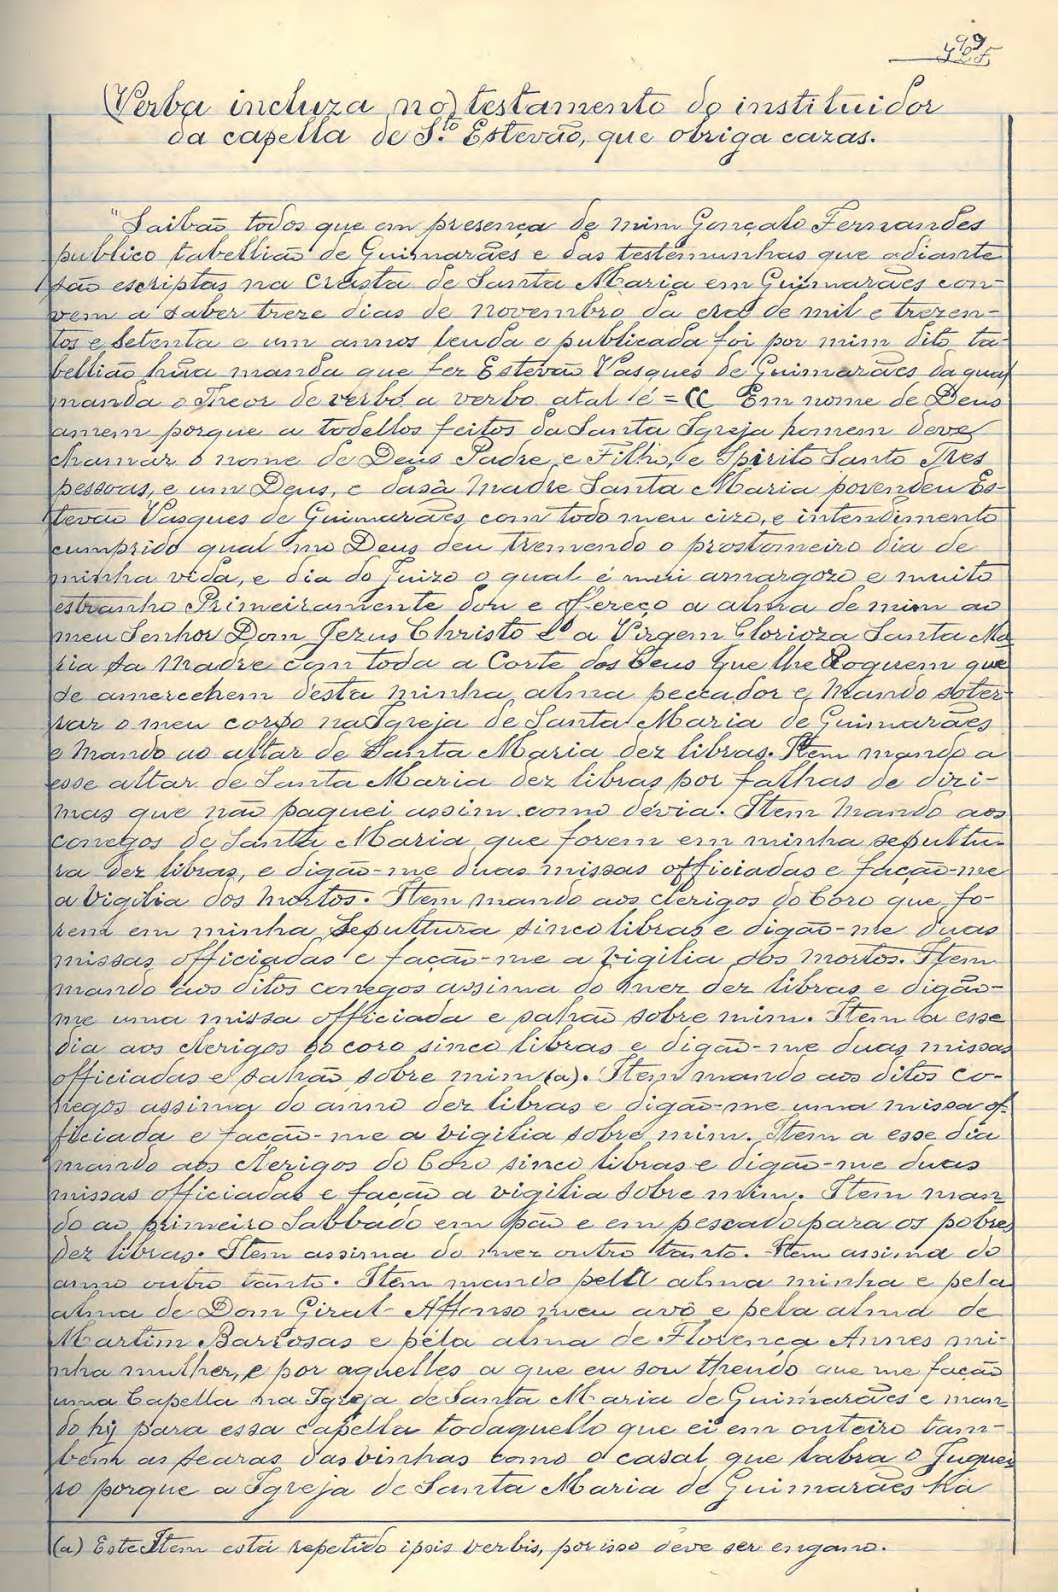 (Verba incluza no) testamento do instituidor
da capella de S.to Estevão, que obriga cazas.
"Saibão todos que em presença de mim Gonçalo Fernandes
publico tabellião de Guimarães e das testemunhas que adiante
são escriptas na Crasta de Santa Maria em Guimarães con-
vem a saber treze dias de novembro da era de mil e trezen-
tos e setenta e um annos leuda e publicada foi por mim dito ta-
bellião hũa manda que fez Estevão Vasques de Guimarães da qual
manda o Theor de verbo a verbo atal é = Em nome de Deus
amem porque a todellos feitos da Santa Igreja homem deve
chamar o nome de Deus Padre, e Filho, e Spirito Santo Tres
pessoas, e um Deus, e dasã Madre Santa Maria porendeu Es-
tevão Vasques de Guimarães, com todo meu cizo, e intendimento
cumprido qual mo Deus deu tremendo o prostomeiro dia de
minha vida, e dia do Juizo o qual é mui amargozo e muito
estranho Primeiramente dou e offereço a alma de mim ao
meu Senhor Dom Jezus Christo e a Virgem Glorioza Santa Ma
ria sa Madre com toda a Corte dos Ceus que lhe Roguem que
se amercehem desta minha alma peccador e Mando soter-
rar o meu corpo na Igreja de Santa Maria de Guimarães
e Mando ao altar de Santa Maria dez libras. Item mando a
esse altar de Santa Maria dez libras por falhas de dizi-
mas que não paguei assim como devia. Item Mando aos
conegos de Santa Maria que forem em minha sepultu-
ra dez libras, e digão-me duas missas officiadas e fação-me
a Vigilia dos mortos. Item mando aos clerigos do Coro que fo-
rem em minha Sepultura sinco libras e digão-me duas
missas officiadas e fação-me a Vigilia dos mortos. Item
mando aos ditos conegos assima do mez dez libras e digão-
me uma missa officiada e sahão sobre mim. Item a esse
dia aos clerigos do coro sinco libras e digão-me duas missas
officiadas e sahão sobre mim (a). Item mando aos ditos co-
negos assima do anno dez libras e digão-me uma missa of-
ficiada e fação-me a vigilia sobre mim. Item a esse dia
mando aos clerigos do Coro sinco libras e digão-me duas
missas officiadas e fação a vigilia sobre mim. Item man-
do ao primeiro Sabbado em pão e em pescado para os pobres
dez libras. Item assima do mez outro tanto. Item assima do
anno outro tanto. Item mando pella alma minha e pela
alma de Dom Giral Affonso meu avô e pela alma de
Martim Barbosas e pela alma de Florença Annes mi-
nha mulher, e por aquelles a que eu sou theudo que me fação
uma Capella na Igreja de Santa Maria de Guimarães e man
do hy para essa capella todaquello que ei em outeiro tam-
bem as searas das vinhas como o casal que labra o Juguei
ro porque a Igreja de Santa Maria de Guimarães ha
(a) Este Item está repetido ipsis verbis, por isso deve ser engano.